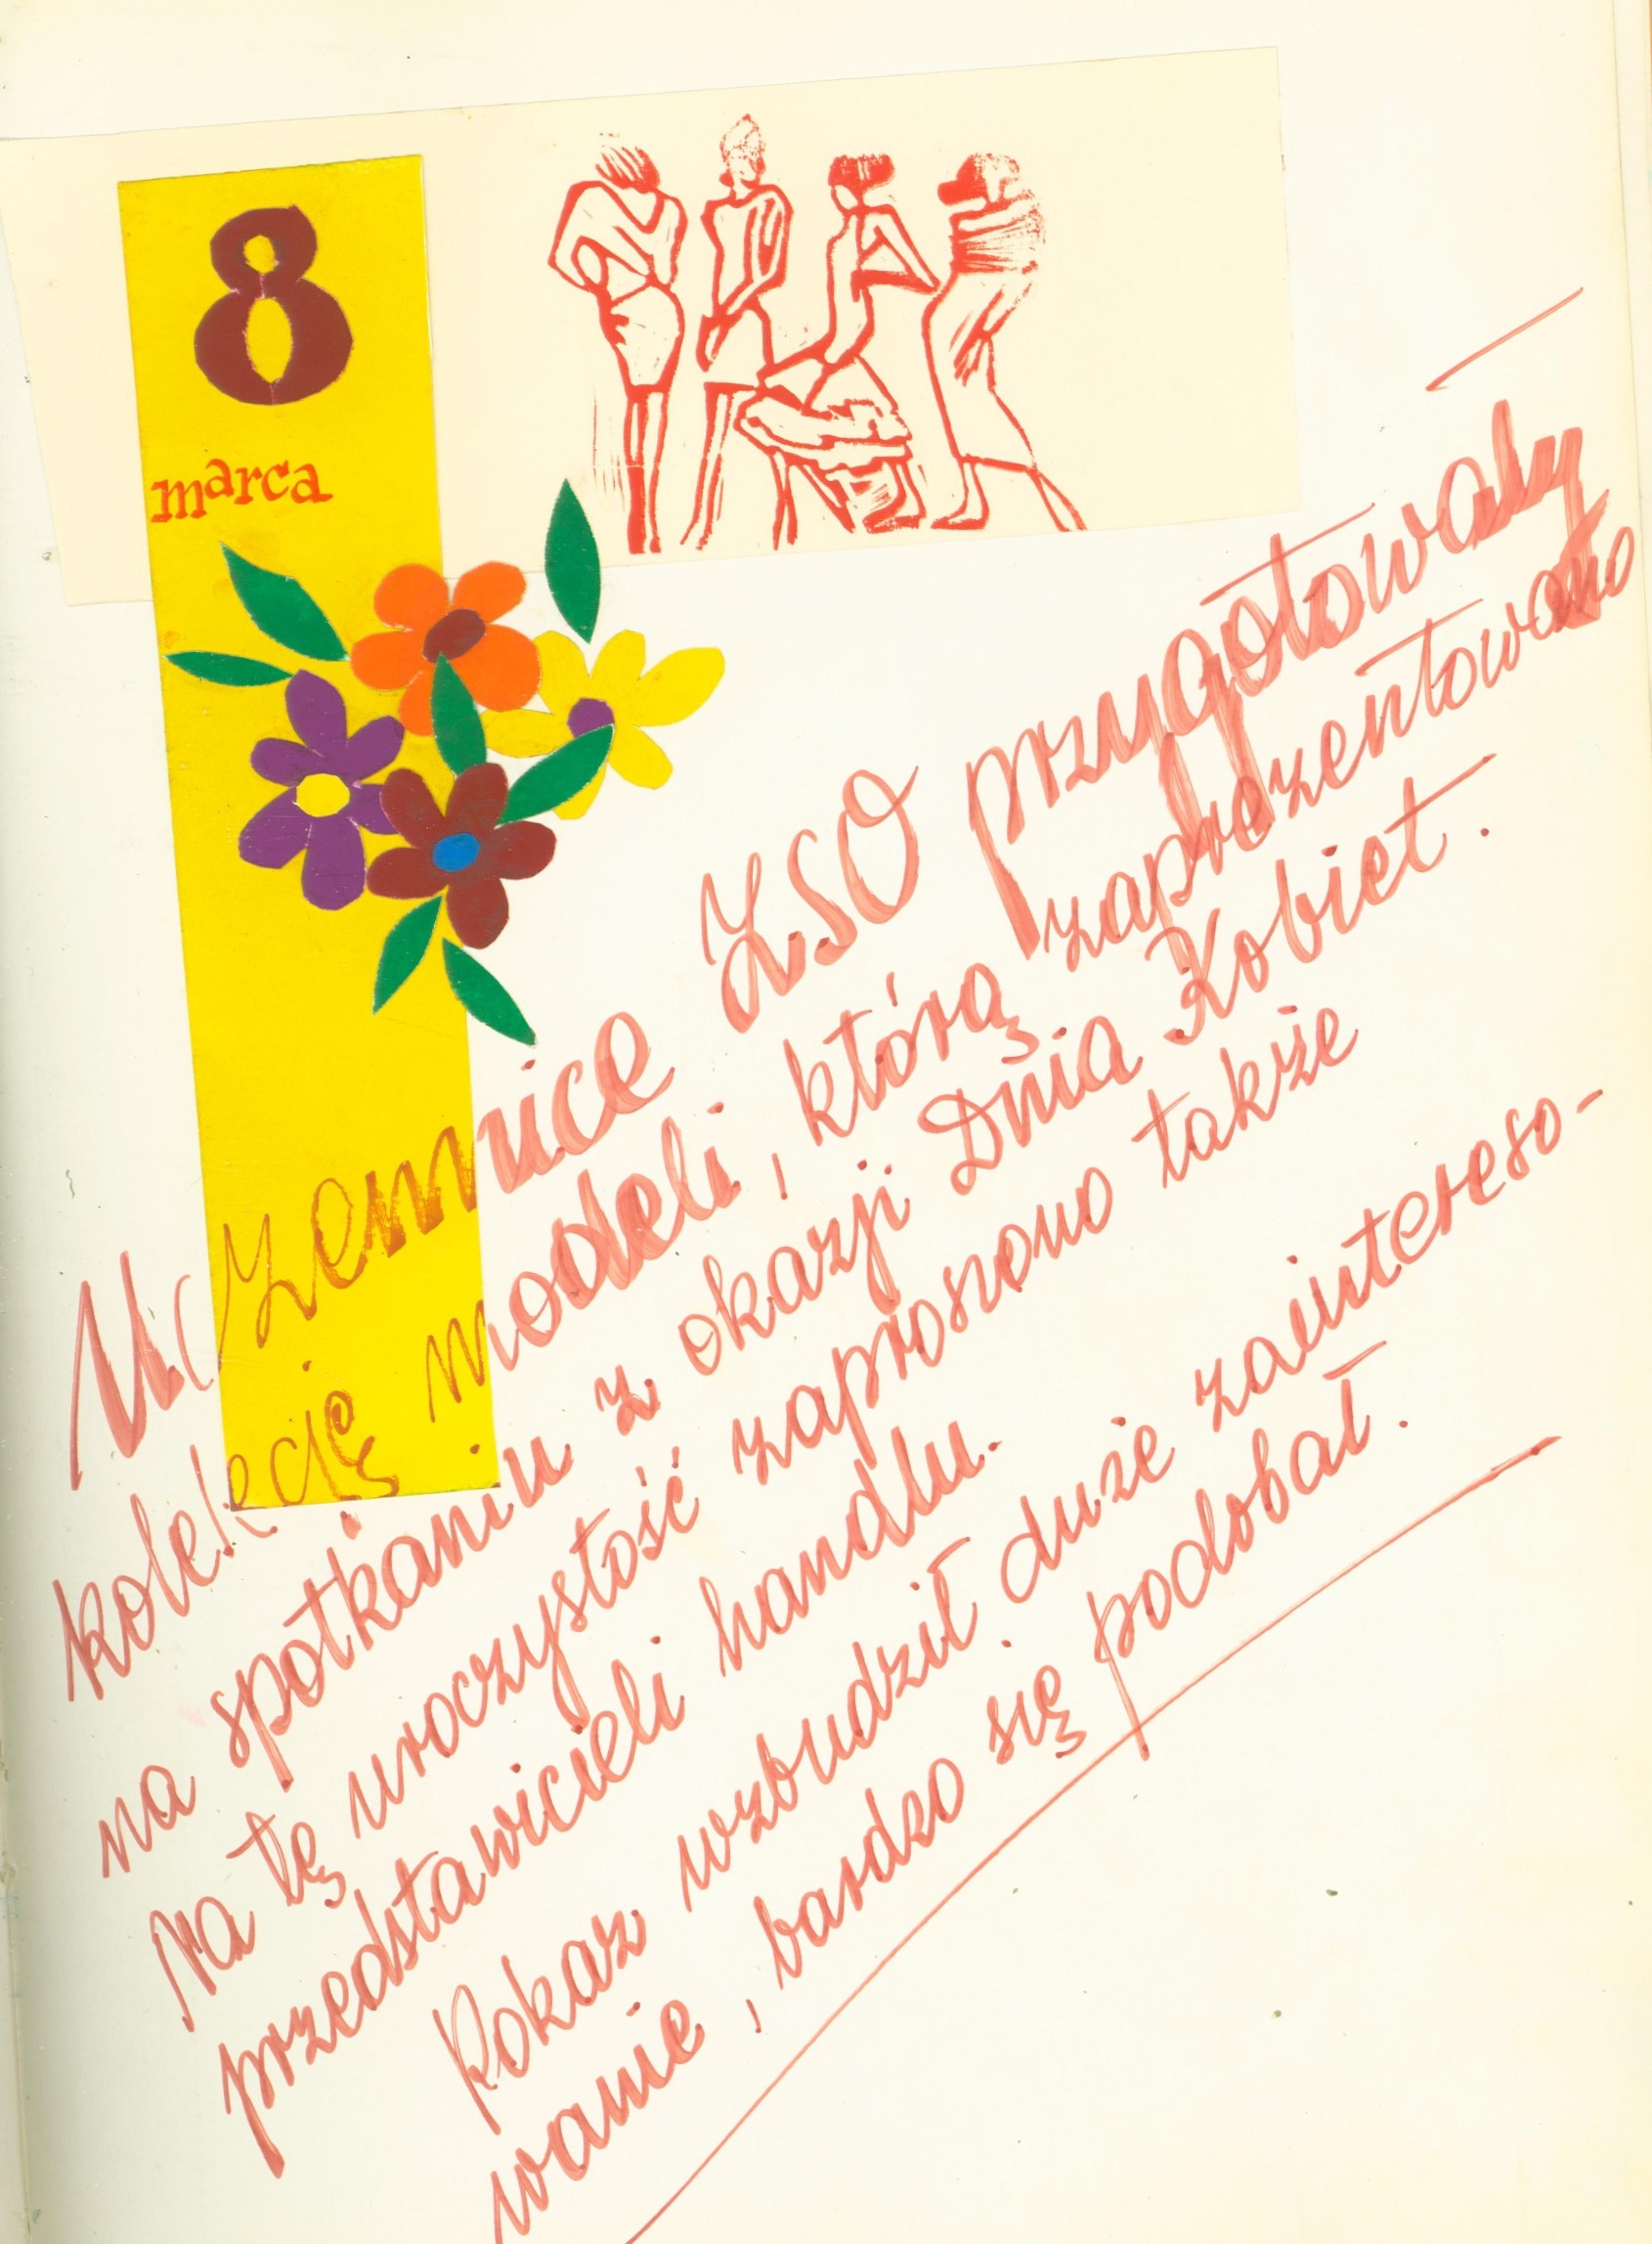 8
marca
Uczennice ZSO przygotowały
kolekcję modeli, którą zaprezentowano
na spotkaniu z okazji Dnia Kobiet.
Na tę uroczystość zaproszono także
przedstawicieli handlu.
Pokaz wzbudził duże zaintereso-
wanie, bardzo się podobał.